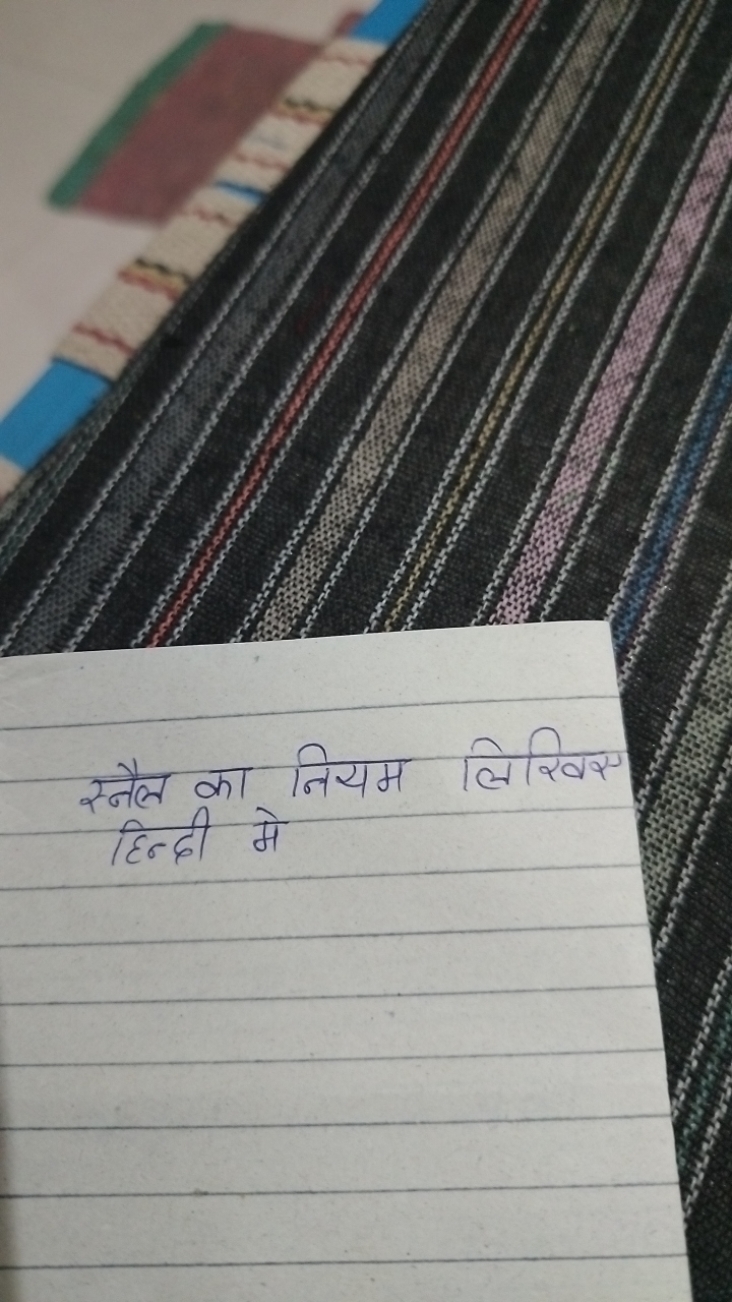 स्नैल का नियम लिखिए
हिन्दी मे